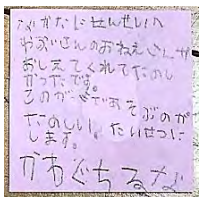 なかたにせんせいへ
やおやさんのおねえさんが
おしえてくれてたのし
かったです。
このがっきであそぶのが
たのしい。たいせつに
します。
かわぐちるな